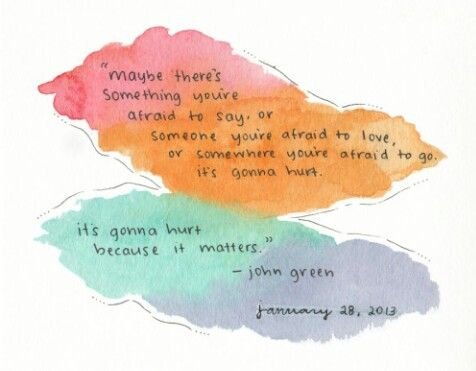 "maybe there's
something you're
afraid to say, or
someone you're afraid to love,
or somewhere you're afraid to go.
it's gonna hurt.
it's gonna hurt
because it matters."
– john green
january 28, 2013